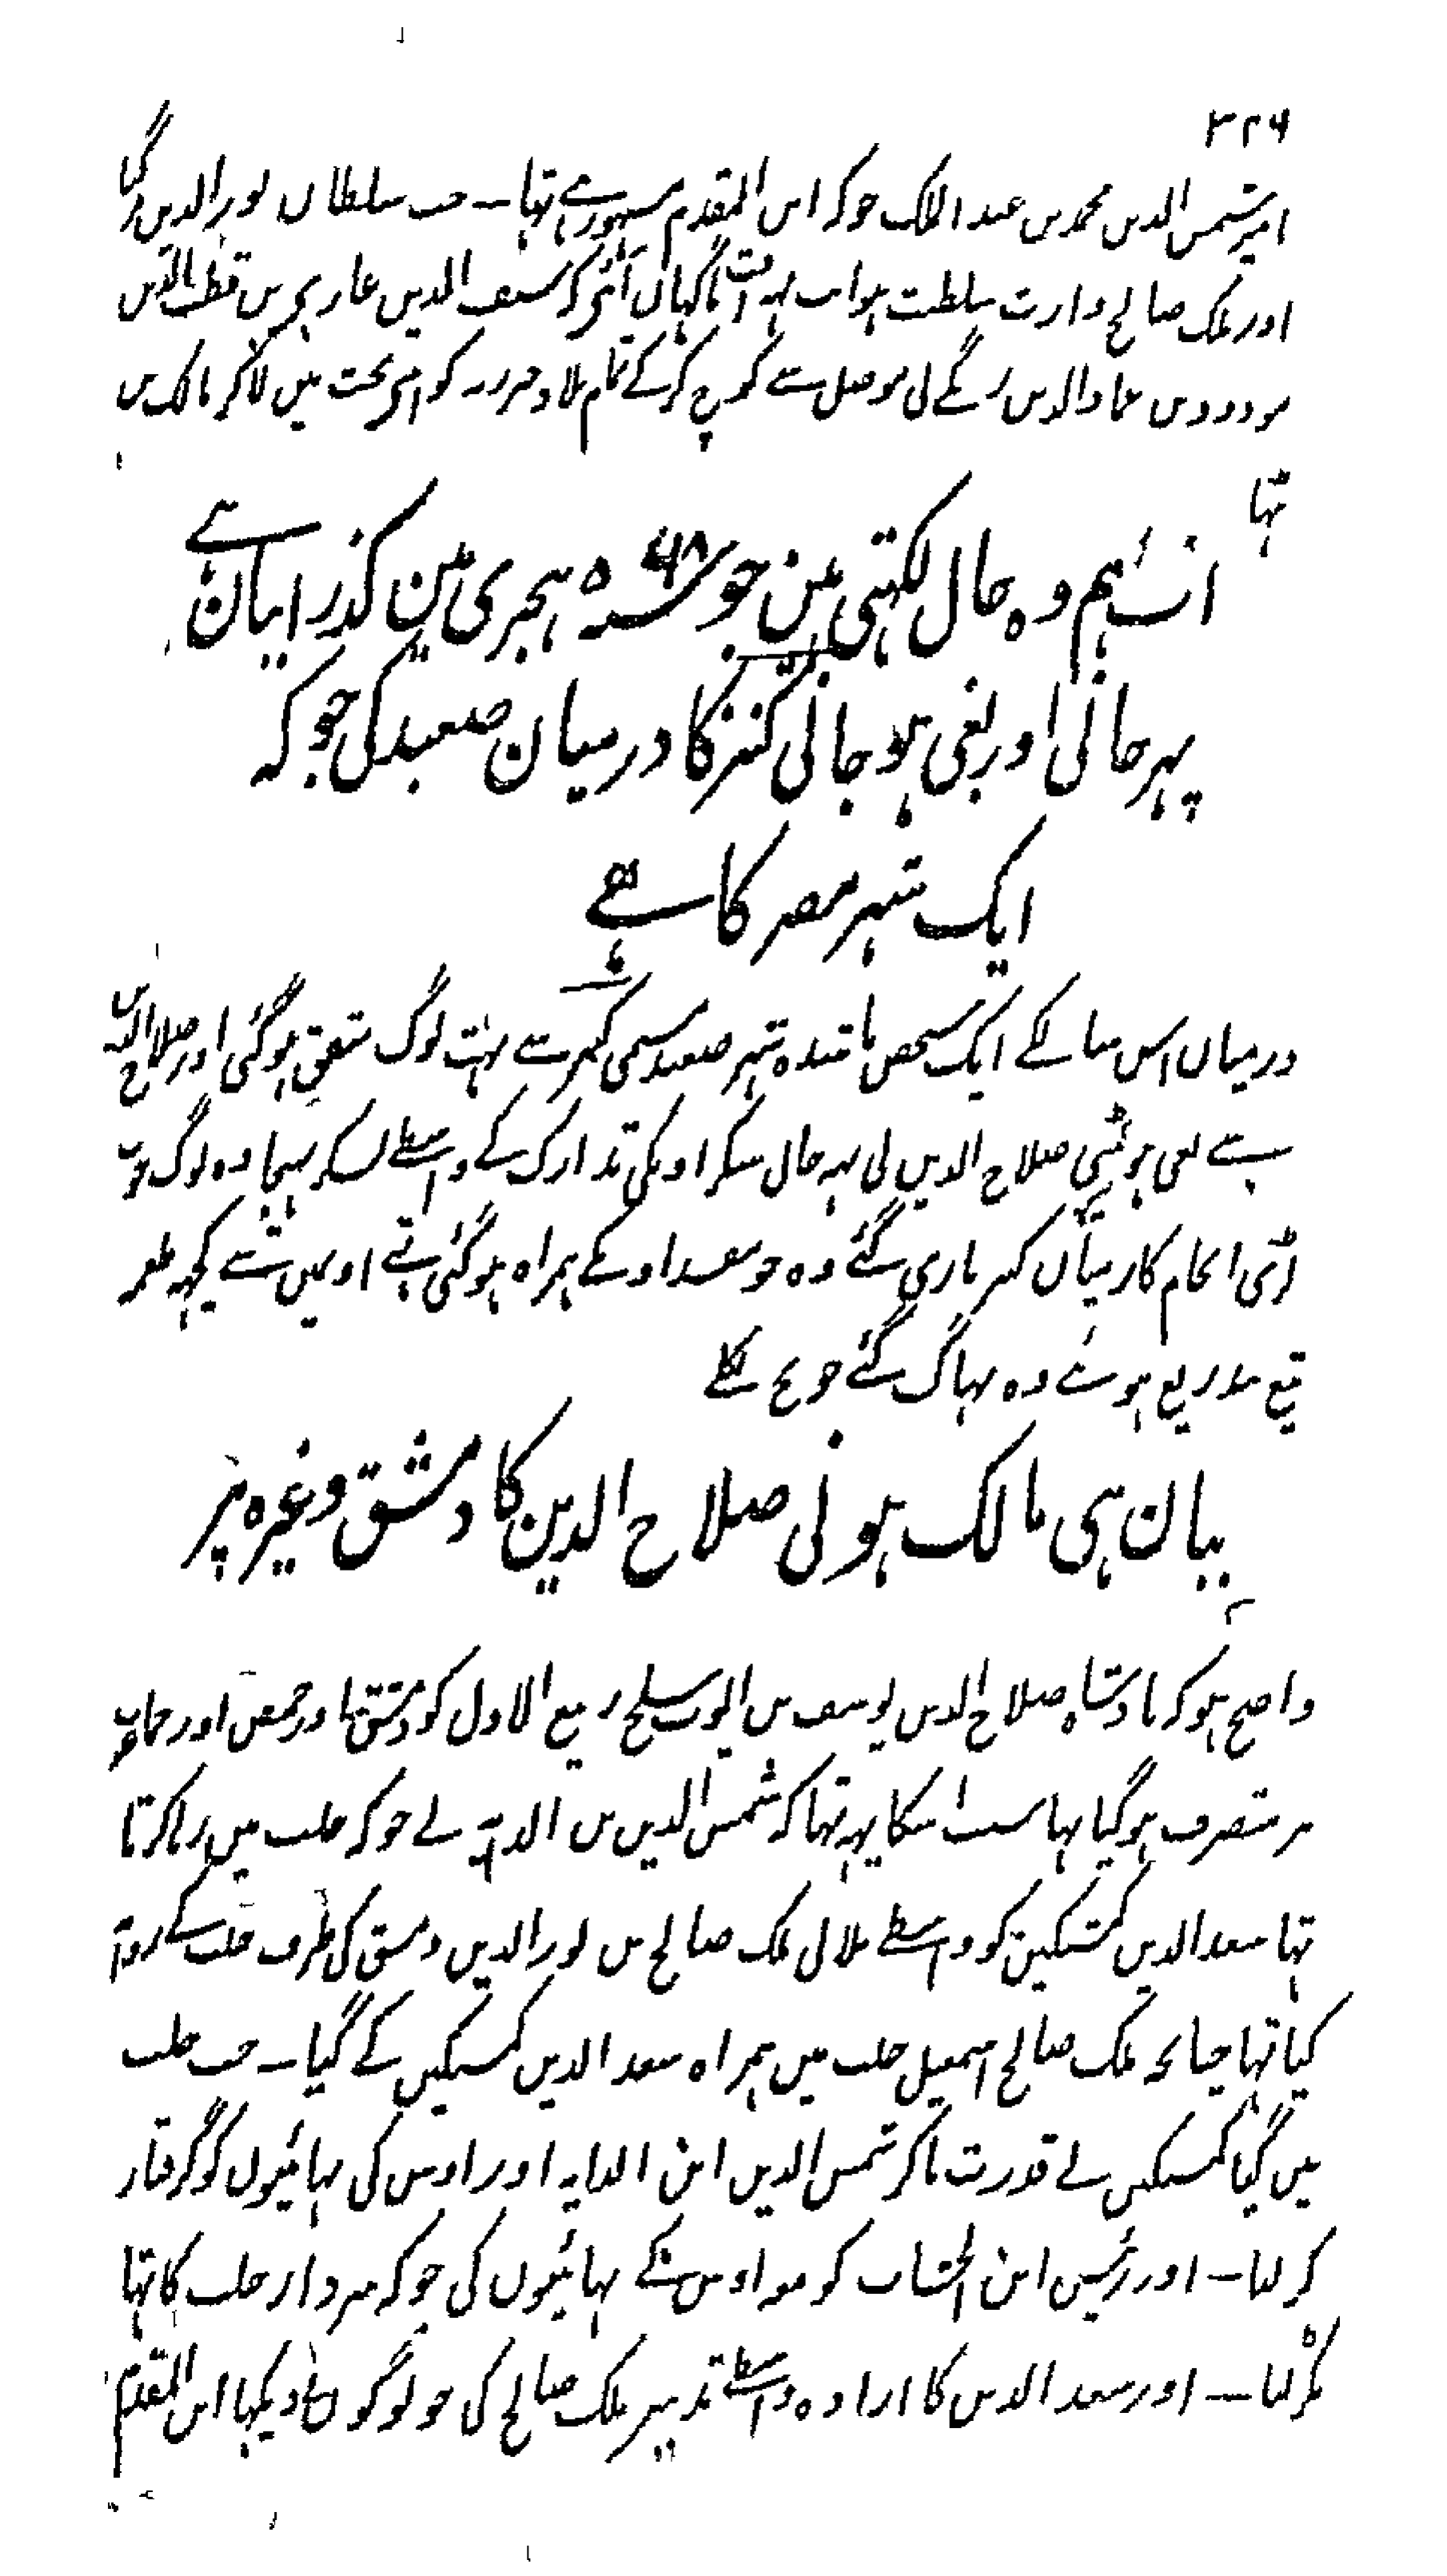 ۳۲۶
امیر شمس الدین محمد بن عبد الملک جو کہ ابن المقدم مشہور ہے تہا ــ جب سلطان نور الدین مر گیا
اور ملک صالح وارث سلطنت ہوا اب یہ آفت ناگہان آئی کہ سیف الدین غازی بن قطب الدین
مودود بن عماد الدین زنگے نی موصل سے کوچ کر کے تمام بلاد جزریہ کو اپنی تحت میں لا کر مالک بن
تہا
اب ہم وہ حال لکہتی ہین جو سنہ ۵۶۸ ہجری مین گذرا بیان ہے
پہر جانی اور بغی ہو جانی کنز کا درمیان صعید کی جو کہ
ایک شہر مصر کا ہے
درمیان اس سال کے ایک شخص باشندہ شہر صعید مسمی کنز سے بہت لوگ متفق ہو گئی اور صلاح الدین
سے بغی ہو گئی صلاح الدین نی یہہ حال سنکر اونکی تدارک کے واسطے لشکر بہیجا وہ لوگ خوب
لڑی انجام کار میاں کنز ماری گئے وہ جو مفسد اوسکے ہمراہ ہو گئی تہے اونمیں سے کچہہ طعمہ
تیغ بدریغ ہوئے وہ بہاگ گئے جو بچ نکلے
بیان ہی مالک ہونی صلاح الدین کا دمشق وغیرہ پر
واضح ہو کہ بادشاہ صلاح الدین یوسف بن ایوب سلخ ربیع الاول کو دمشق اور حمص اور حماہ
پر متصرف ہو گیا تہا سبب اسکا یہہ تہا کہ شمس الدین بن الدایہ نے جو کہ حلب میں رہا کرتا
تہا سعد الدین کمشتکین کو واسطے بلانی ملک صالح بن نور الدین دمشق کی طرف حلب کے روانہ
کیا تہا چنانچہ ملک صالح اسمعیل حلب میں ہمراہ سعد الدین کمشتکین کے گیا ــ جب حلب
میں گیا کمشتکین نے قدرت پا کر شمس الدین ابن الدایہ اور اوس کی بہائیوں کو گرفتار
کر لیا ــ اور رئیس ابن الخشاب کو مع اوس کے بہائیوں کی جو کہ سردار حلب کا تہا
پکڑ لیا ــ اور سعد الدین کا ارادہ واسطے تدبیر ملک صالح کی جو لوگوں نی دیکہا ابن المقدم